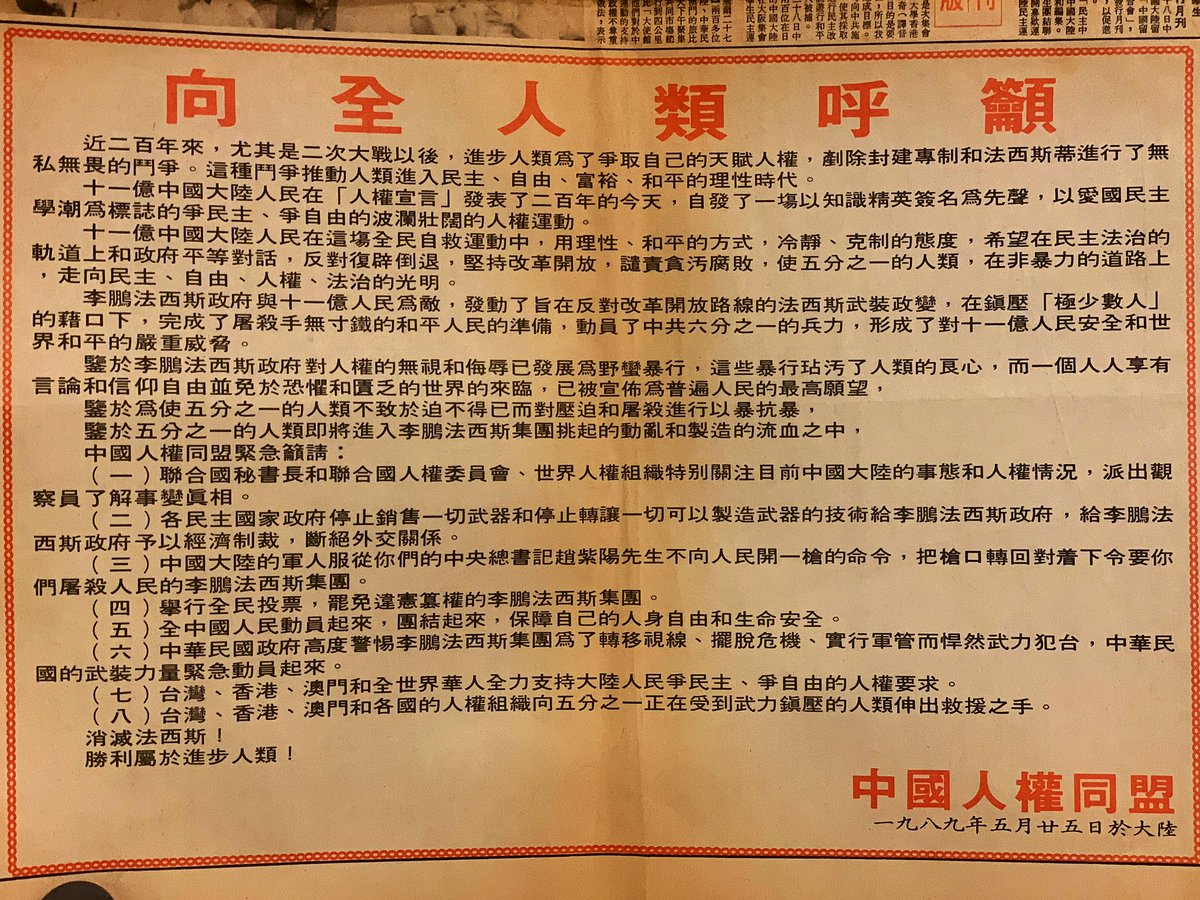 向全人類呼籲
近二百年來，尤其是二次大戰以後，進步人類爲了爭取自己的天賦人權，剷除封建專制和法西斯蒂進行了無
私無畏的鬥爭。這種鬥爭推動人類進入民主、自由、富裕、和平的理性時代。
十一億中國大陸人民在「人權宣言」發表了二百年的今天，自發了一場以知識精英簽名爲先聲，以愛國民主
學潮爲標誌的爭民主、爭自由的波瀾壯闊的人權運動。
十一億中國大陸人民在這場全民自救運動中，用理性、和平的方式，冷靜、克制的態度，希望在民主法治的
軌道上和政府平等對話，反對復辟倒退，堅持改革開放，譴責貪汚腐敗，使五分之一的人類，在非暴力的道路上
，走向民主、自由、人權、法治的光明。
李鵬法西斯政府與十一億人民爲敵，發動了旨在反對改革開放路線的法西斯武裝政變，在鎭壓「極少數人」
的藉口下，完成了屠殺手無寸鐵的和平人民的準備，動員了中共六分之一的兵力，形成了對十一億人民安全和世
界和平的嚴重威脅。
鑒於李鵬法西斯政府對人權的無視和侮辱已發展爲野蠻暴行，這些暴行玷汚了人類的良心，而一個人人享有
言論和信仰自由並免於恐懼和匱乏的世界的來臨，已被宣佈爲普遍人民的最高願望，
鑒於爲使五分之一的人類不致於迫不得已而對壓迫和屠殺進行以暴抗暴，
鑒於五分之一的人類即將進入李鵬法西斯集團挑起的動亂和製造的流血之中，
中國人權同盟緊急籲請：
（一）聯合國秘書長和聯合國人權委員會、世界人權組織特別關注目前中國大陸的事態和人權情況，派出觀
察員了解事變眞相。
（二）各民主國家政府停止銷售一切武器和停止轉讓一切可以製造武器的技術給李鵬法西斯政府，給李鵬法
西斯政府予以經濟制裁，斷絕外交關係。
（三）中國大陸的軍人服從你們的中央總書記趙紫陽先生不向人民開一槍的命令，把槍口轉回對着下令要你
們屠殺人民的李鵬法西斯集團。
（四）舉行全民投票，罷免違憲篡權的李鵬法西斯集團。
（五）全中國人民動員起來，團結起來，保障自己的人身自由和生命安全。
（六）中華民國政府高度警惕李鵬法西斯集團爲了轉移視線、擺脫危機、實行軍管而悍然武力犯台，中華民
國的武裝力量緊急動員起來。
（七）台灣、香港、澳門和全世界華人全力支持大陸人民爭民主、爭自由的人權要求。
（八）台灣、香港、澳門和各國的人權組織向五分之一正在受到武力鎭壓的人類伸出救援之手。
消滅法西斯！
勝利屬於進步人類！
中國人權同盟
一九八九年五月廿五日於大陸